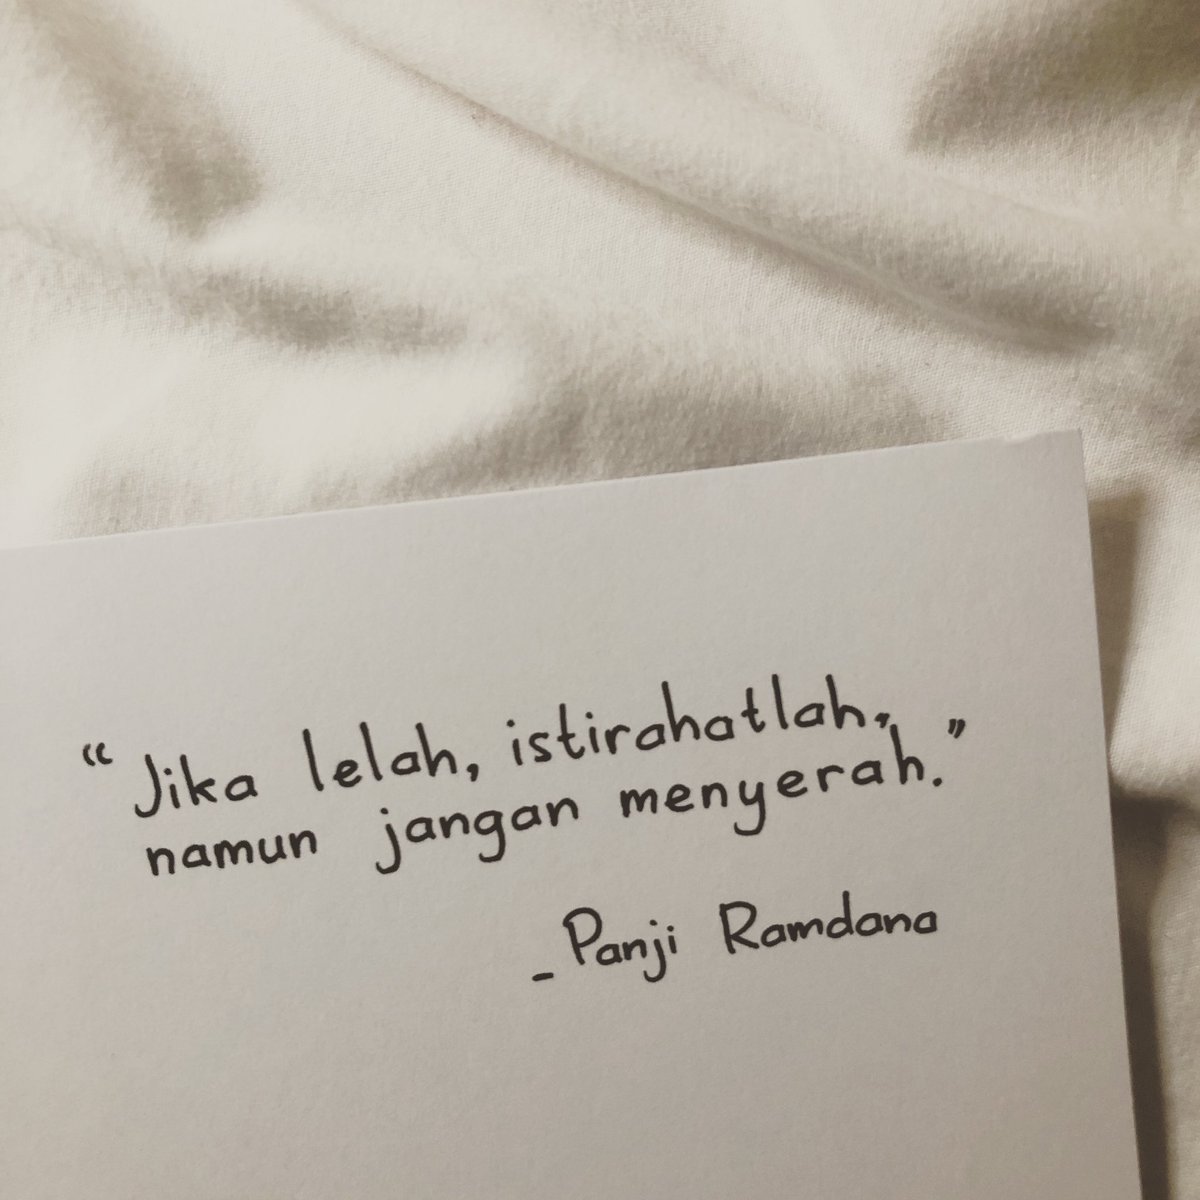 “Jika lelah, istirahatlah,
namun jangan menyerah.”
_ Panji Ramdana